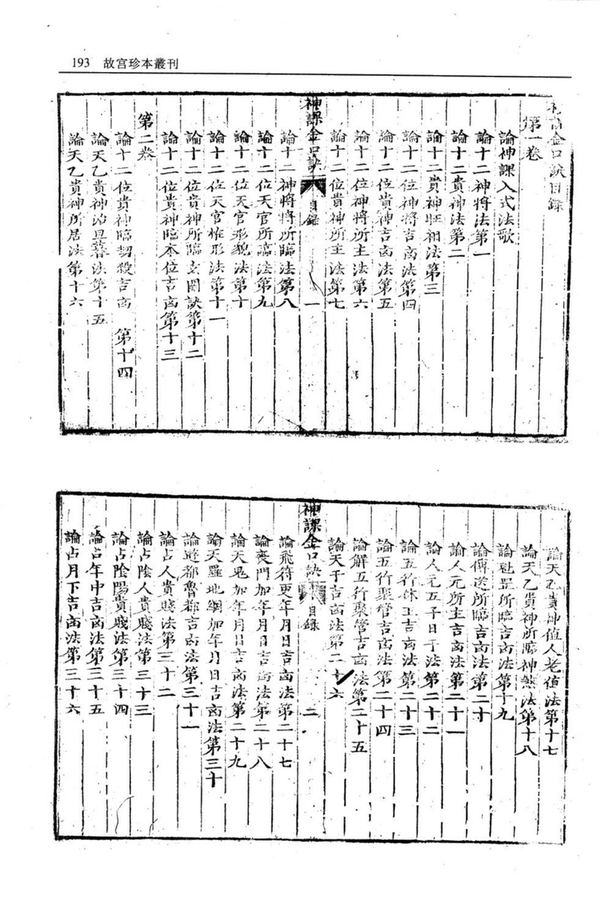 193 故宫珍本叢刊
神課金口訣目錄
第一卷
論神課入式法歌
論十二神將法第一
論十二貴神法第二
論十二貴神旺相法第三
論十二位神將吉凶法第四
論十二位貴神吉凶法第五
論十二位神將所主法第六
論十二位貴神所主法第七
神課金口訣 目錄 一
論十二神將將所臨法第八
論十二位天官所臨法第九
論十二位天官形貌法第十
論十二位天官權形法第十一
論十二位貴神所臨玄關訣第十二
論十二位貴神臨本位吉凶第十三
第二卷
論十二位貴神臨劫殺吉凶 第十四
論天乙貴神治旦暮法第十五
論天乙貴神所居法第十六
論天乙貴神值人老值法第十七
論天乙貴神所臨神煞法第十八
論魁罡所臨吉凶法第十九
論傳送所臨吉凶法第二十
論人元所主吉凶法第二十一
論人元五子日干法第二十二
論五行休王吉凶法第二十三
論五行聚管吉凶法第二十四
論解五行聚管吉凶法第二十五
論天干吉凶法第二十六
神課金口訣 目錄 二
論飛符更年月日吉凶法第二十七
論喪門加年月日吉凶法第二十八
論天鬼加年月日吉凶法第二十九
論天羅地網加年月日吉凶法第三十
論遊都魯都吉凶法第三十一
論占人貴賤法第三十二
論占陰人貴賤法第三十三
論占陰陽貴賤法第三十四
論占年中吉凶法第三十五
論占月下吉凶法第三十六